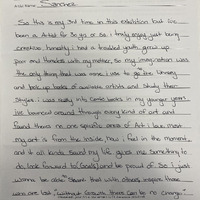 Sanchez
So this is my 3rd time in this exhibition but I've
been a Artist for 30 yrs or so. I truly enjoy just being
creative. honestly I had a troubled youth, grew up
poor and homeless with my mother, so my imagination was
the only thing that was mine. I use to go the library
and pick up books of various artists and study their
Styles. I was really into Comic books in my younger years.
I've bounced around through every kind of art and
found theres no one specific areas of Art I love more
my art is from the inside, how I feel in the moment,
and it all kinda saved my life gives me something to
do, look forward to (Goals) and be proud of. So I just
wanna be able share that with others inspire those
who are lost, without Erasure, there Can be no change.